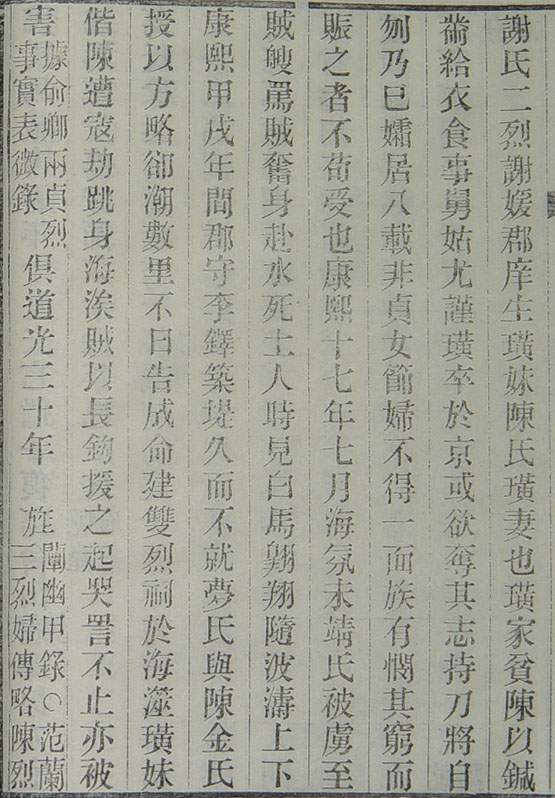 謝氏二烈謝媛郡庠生璜妹陳氏璜妻也璜家貧陳以鍼
黹給衣食事舅姑尤謹璜卒於京或欲奪其志持刀將自
刎乃已孀居八載非貞女節婦不得一面族有憫其窮而
賑之者不苟受也康熙十七年七月海氛未靖氏被虜至
賊艘罵賊奮身赴水死土人時見白馬翱翔隨波濤上下
康熙甲戌年間郡守李鐸築堤久而不就夢氏與陳金氏
授以方略卻潮數里不日告成命建雙烈祠於海澨璜妹
偕陳遭寇劫跳身海涘賊以長鉤援之起哭詈不止亦被
害據俞卿兩貞烈事實表微錄 俱道光三十年 旌闡幽甲錄○范蘭三烈婦傳略陳烈